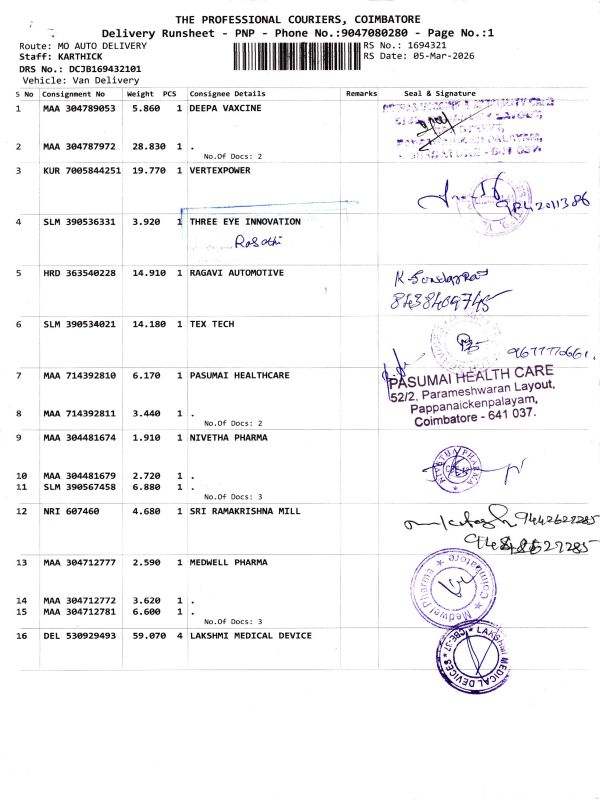 THE PROFESSIONAL COURIERS, COIMBATORE
Delivery Runsheet - PNP - Phone No.:9047080280 - Page No.:1
Route: MO AUTO DELIVERY
RS No.: 1694321
Staff: KARTHICK
RS Date: 05-Mar-2026
DRS No.: DCJB169432101
Vehicle: Van Delivery
S No Consignment No Weight PCS Consignee Details Remarks Seal & Signature
1 MAA 304789053 5.860 1 DEEPA VAXCINE
2 MAA 304787972 28.830 1 .
No.Of Docs: 2
3 KUR 7005844251 19.770 1 VERTEXPOWER
9842011386
4 SLM 390536331 3.920 1 THREE EYE INNOVATION
5 HRD 363540228 14.910 1 RAGAVI AUTOMOTIVE
8438409745
6 SLM 390534021 14.180 1 TEX TECH
7 MAA 714392810 6.170 1 PASUMAI HEALTHCARE
PASUMAI HEALTH CARE
52/2, Parameshwaran Layout,
Pappanaickenpalayam,
Coimbatore - 641 037.
8 MAA 714392811 3.440 1 .
No.Of Docs: 2
9 MAA 304481674 1.910 1 NIVETHA PHARMA
10 MAA 304481679 2.720 1 .
11 SLM 390567458 6.880 1 .
No.Of Docs: 3
12 NRI 607460 4.680 1 SRI RAMAKRISHNA MILL
9442627285
13 MAA 304712777 2.590 1 MEDWELL PHARMA
Medwel Pharma * Coimbatore *
14 MAA 304712772 3.620 1 .
15 MAA 304712781 6.600 1 .
No.Of Docs: 3
16 DEL 530929493 59.070 4 LAKSHMI MEDICAL DEVICE
LAKSHMI MEDICAL DEVICES * CBE-37 *